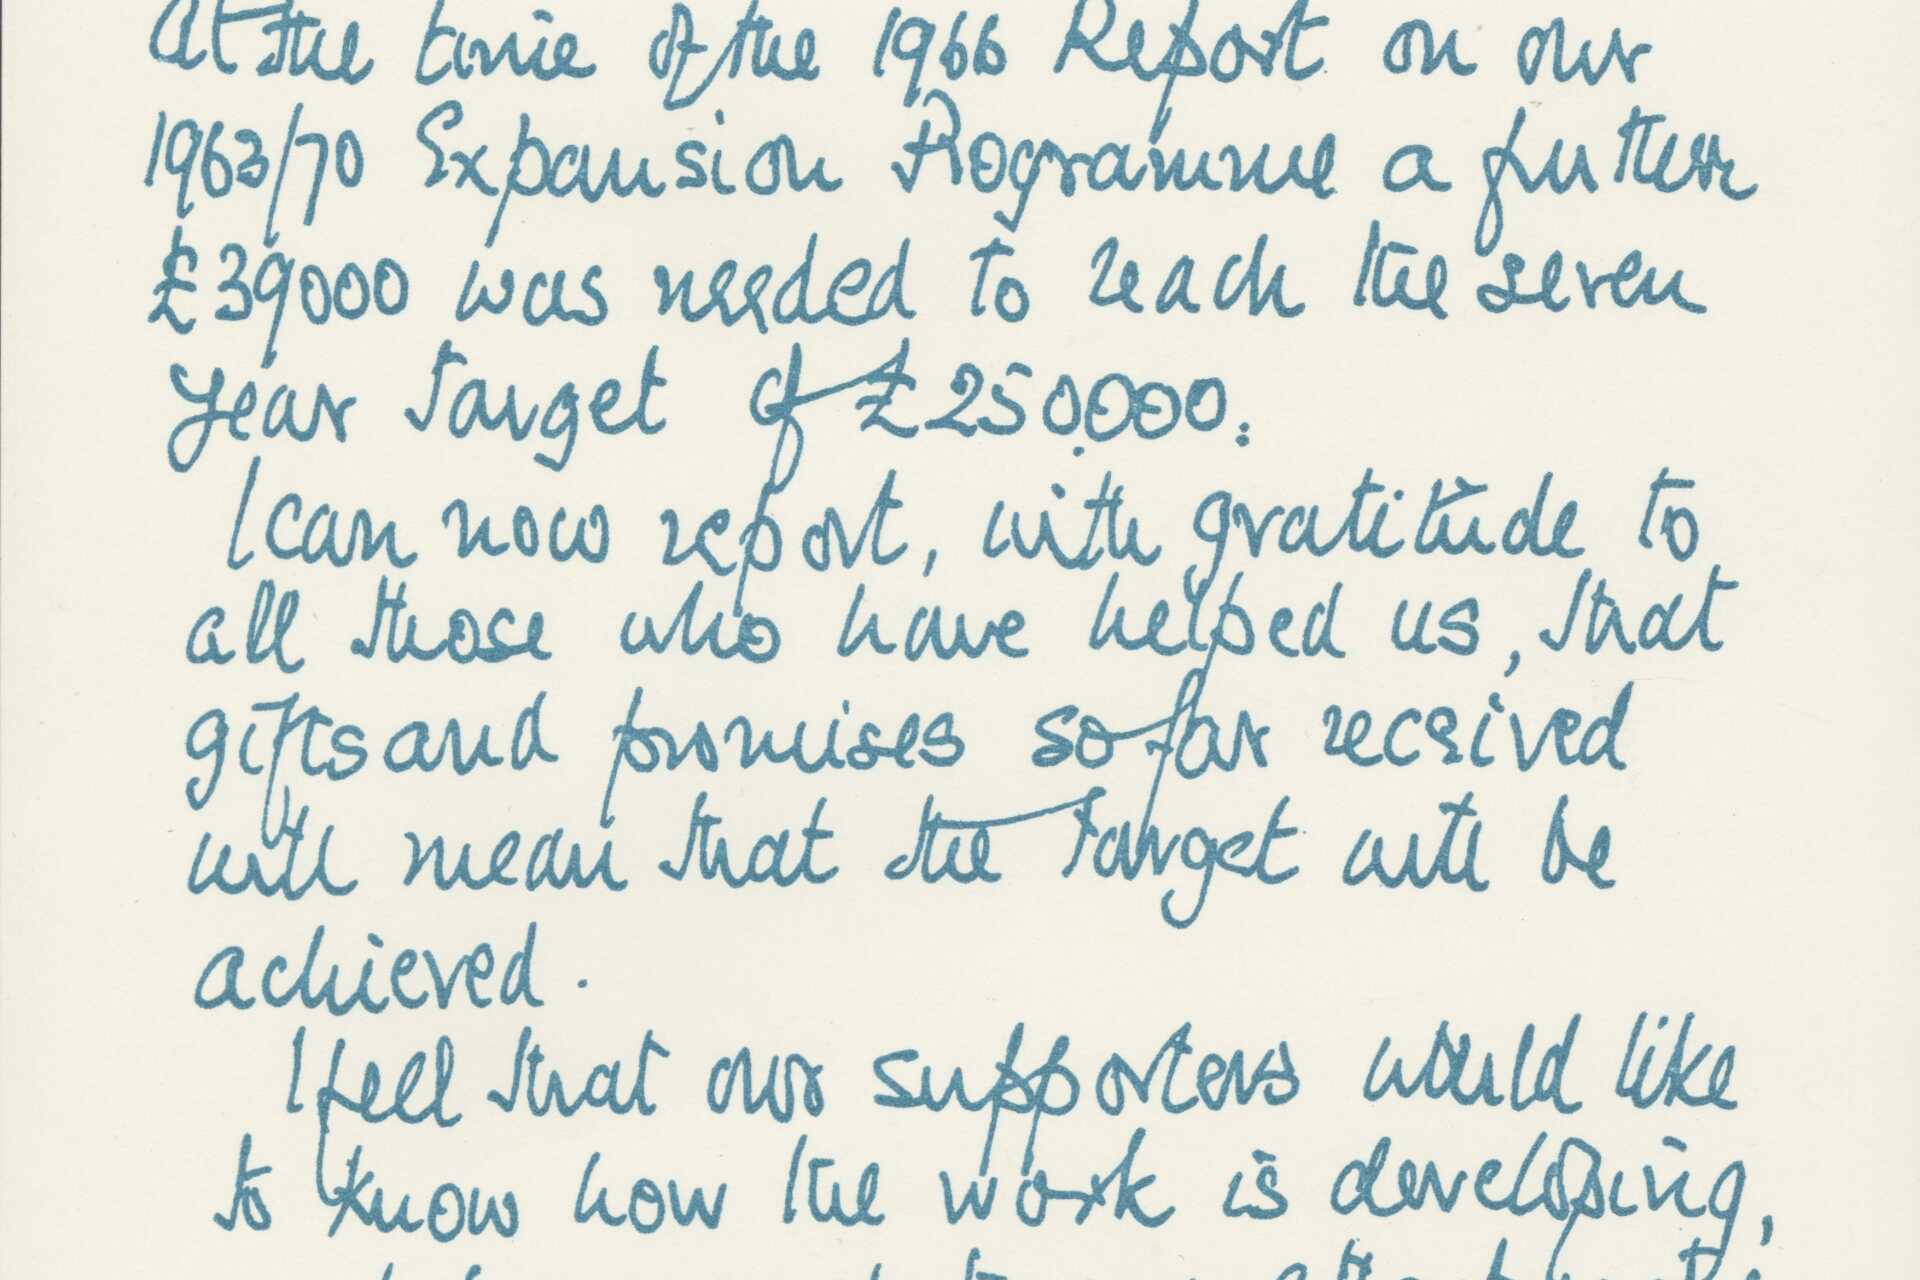 At the time of the 1966 Report on our
1963/70 Expansion Programme a further
£39000 was needed to reach the seven
year target of £250,000.
I can now report, with gratitude to
all those who have helped us, that
gifts and promises so far received
will mean that the target will be
achieved.
I feel that our supporters would like
to know how the work is developing,